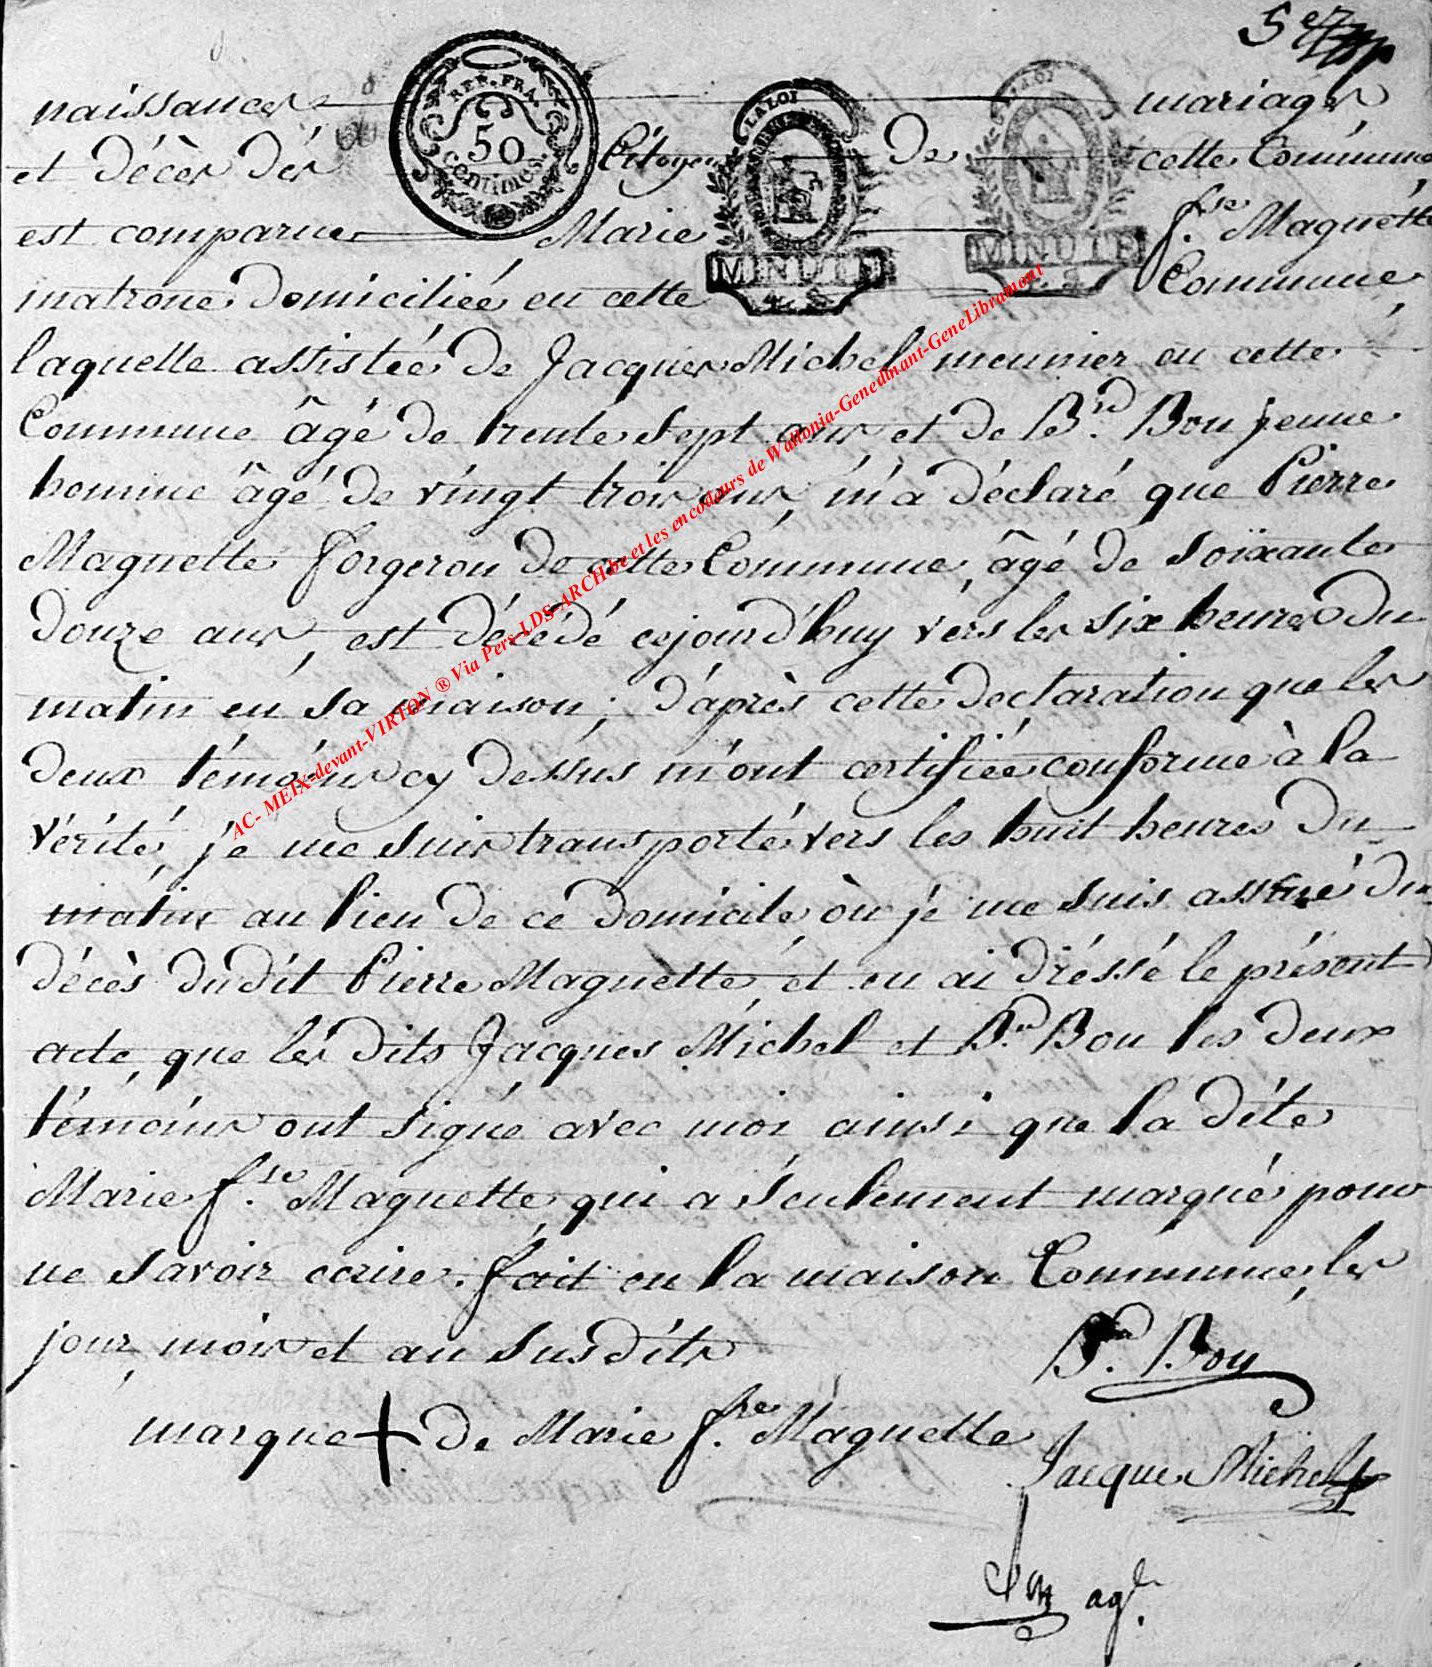 5e
naissances mariages
REP. FRA.
50
centimes.
LA LOI
LA LOI
et décès des Citoyens De cette Commune
est comparue Marie f.se Maguette
MINUTE
MINUTE
matrone Domiciliée en cette Commune
laquelle assistée de Jacques Michel meunier en cette
Commune âgé de trente sept ans et de B.rd Bou jeune
homme âgé de vingt trois ans, m'a déclaré que Pierre
Maguette forgeron de cette Commune, âgé de soixante
douze ans, est décédé cejourd'huy vers les six heures du
matin en sa maison; d'après cette declaration que les
deux témoins cy dessus m'ont certifiée conforme à la
vérité, je me suis transporté vers les huit heures du
matin au lieu de ce domicile, où je me suis assuré du
décès dudit Pierre Maguette, et en ai dréssé le présent
acte, que les dits Jacques Michel et B.rd Bou les deux
témoins ont signé avec moi ainsi que la dite
Marie f.se Maguette qui a seulement marqué pour
ne savoir ecrire. fait en la maison Commune, les
jour, mois et an susdits
B. Bou
marque + de Marie f.se Maguette
Jacque Michel
ag.t
AC- MEIX-devant-VIRTON ® Via Pers-LDS-ARCH be et les encodeurs de Wallonia-Genedinant-GeneLibramont